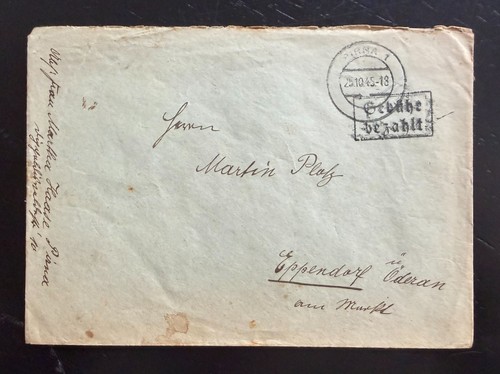 PIRNA 1
25.10.45-18
Gebühr
bezahlt
Herrn
Martin Platz
Eppendorf ü Öderan
am Markt
Abs. Frau Martha Haase Pirna